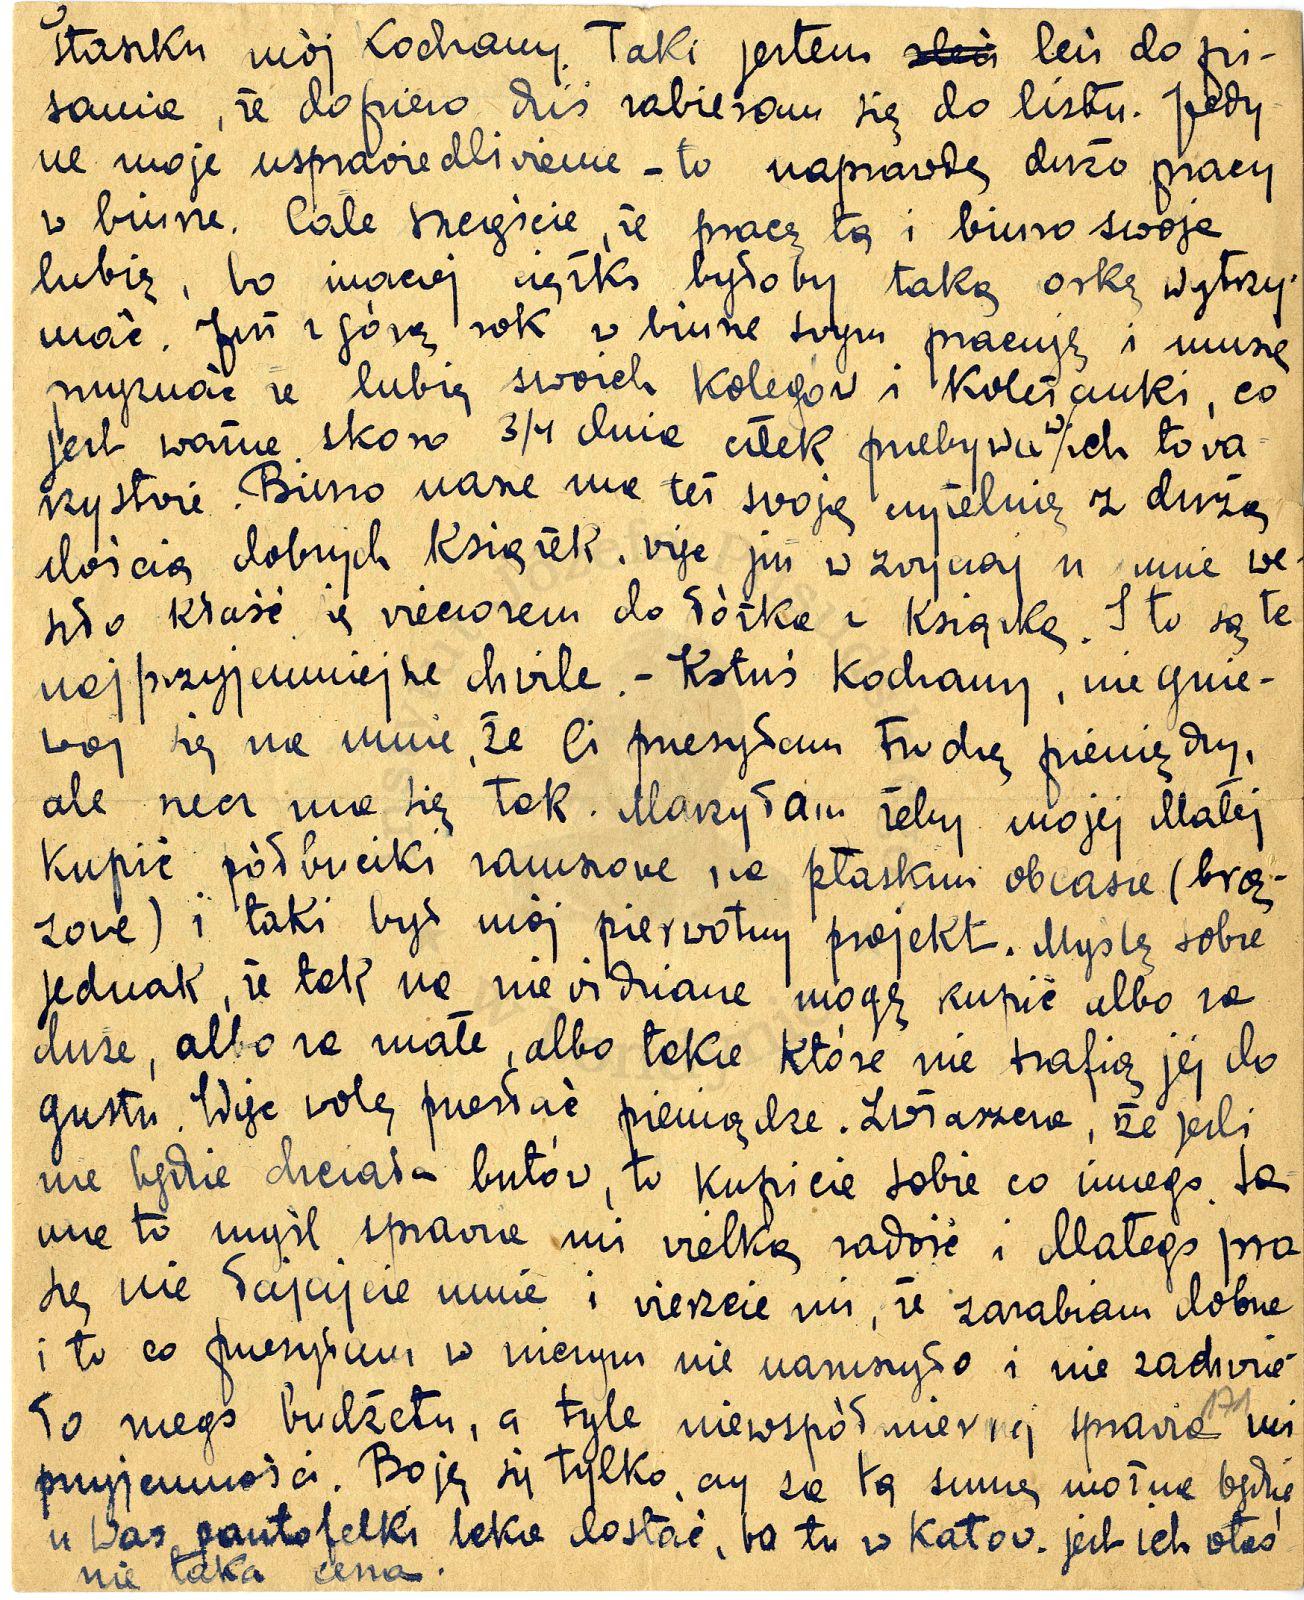 Staszku mój Kochany. Taki jestem leń do pi-
sania, że dopiero dziś zabieram się do listu. Jedy-
ne moje usprawiedliwienie - to naprawdę dużo pracy
w biurze. Całe szczęście, że pracę tą i biuro swoje
lubię, bo inaczej ciężko byłoby taką orkę wytrzy-
mać. Już z górą rok w biurze swym pracuję i muszę
przyznać że lubię swoich kolegów i koleżanki, co
jest ważne skoro 3/4 dnia człek przebywa w ich towa-
rzystwie. Biuro nasze ma też swoją czytelnię z dużą
ilością dobrych książek. więc już w zwyczaj u mnie we-
szło kłaść się wieczorem do łóżka z książką. I to są te
najprzyjemniejsze chwile. - Kotuś Kochany, nie gnie-
waj się na mnie, że Ci przesyłam trochę pieniędzy,
ale rzecz ma się tak. Marzyłam żeby mojej Małej
kupić półbuciki zamszowe na płaskim obcasie (brą-
zowe) i taki był mój pierwotny projekt. Myślę sobie
jednak, że tak na niewidziane mogę kupić albo za
duże, albo za małe, albo takie które nie trafią jej do
gustu. Więc wolę przesłać pieniądze. Zwłaszcza, że jeśli
nie będzie chciała butów, to kupicie sobie co innego. Sa-
ma to myśl sprawia mi wielką radość i dlatego pro
szę nie łajajcie mnie i wierzcie mi, że zarabiam dobrze
i to co przesyłam w niczym nie naruszyło i nie zachwia
ło mego budżetu, a tyle niewspółmiernej sprawia mi
171
przyjemności. Boję się tylko, czy za tą sumę można będzie
u Was pantofelki takie dostać, bo tu w Katow. jest ich otóż
nie taka cena.